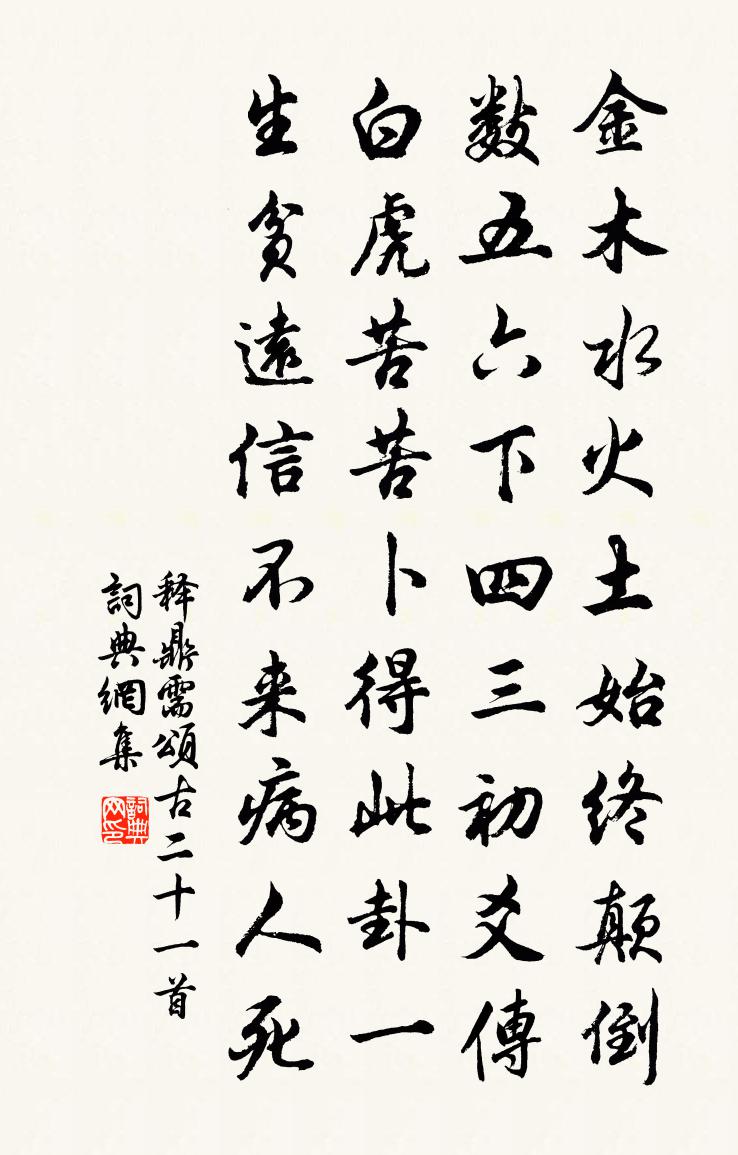 金木水火土始终颠倒
数五六下四三初爻傳
白虎苦苦卜得此卦一
生貧遠信不来病人死
释鼎需頌古二十一首
詞典網集
詞典网印